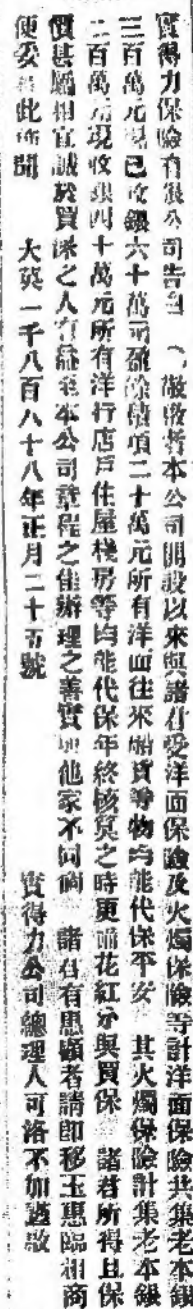 實得力保險有限公司告白　敬啟者本公司開設以來與諸君受洋面保險及火燭保險等計洋面保險共集老本銀
三百萬元現已收銀六十萬元盈餘積項二十萬元所有洋面往來船貨等物均能代保平安　其火燭保險計集老本銀
二百萬元現收銀四十萬元所有洋行店戶住屋棧房等均能代保年終核算之時更酌花紅分與買保　諸君所得且保
價甚屬相宜誠於買保之人有益至本公司章程之佳辦理之善實與他家不同倘　諸君有惠顧者請即移玉惠臨相商
便妥　此佈聞　　大英一千八百八十八年正月二十五號　　實得力公司總理人可洛不加　啟